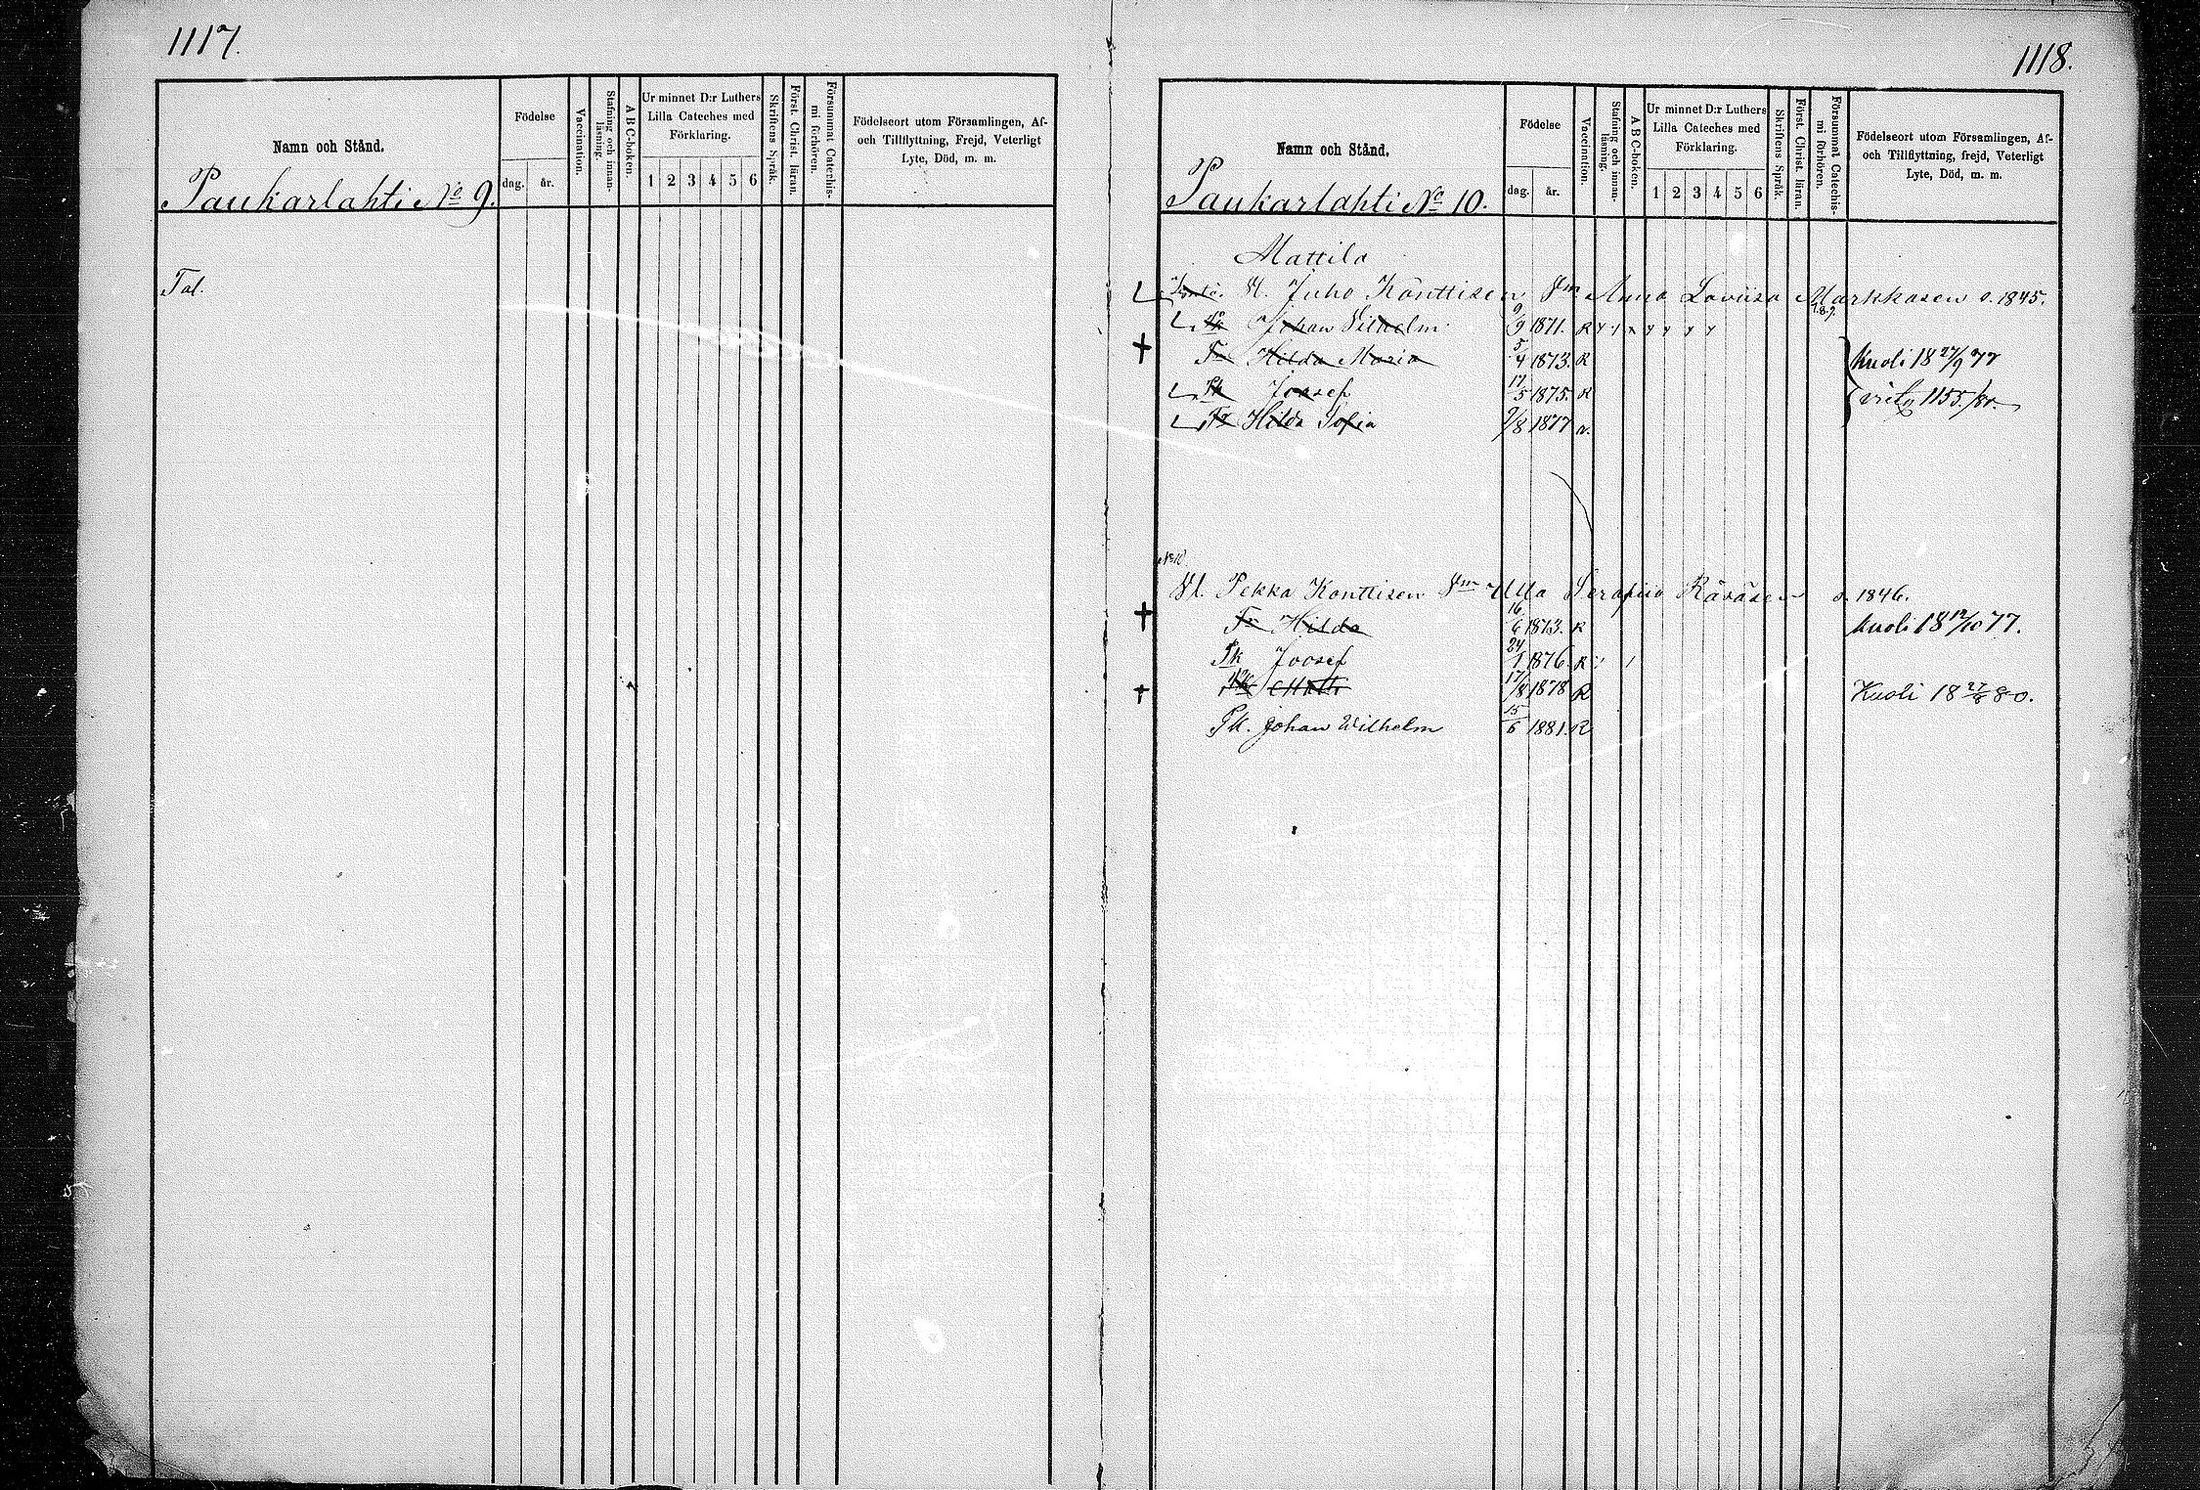 1117.
Namn och Stånd.
Födelse
dag. år.
Vaccination.
Stafning och innanläsning.
A B C-boken.
Ur minnet D:r Luthers Lilla Cateches med Förklaring.
1 2 3 4 5 6
Skriftens Språk.
Först. Christ. läran.
Försummat Catechismi förhören.
Födelseort utom Församlingen, Af- och Tillflyttning, Frejd, Veterligt Lyte, Död, m. m.
Paukarlahti No 9.
Tal.
1118.
Namn och Stånd.
Födelse
dag. år.
Vaccination.
Stafning och innanläsning.
A B C-boken.
Ur minnet D:r Luthers Lilla Cateches med Förklaring.
1 2 3 4 5 6
Skriftens Språk.
Först. Christ. läran.
Försummat Catechismi förhören.
Födelseort utom Församlingen, Af- och Tillflyttning, frejd, Veterligt Lyte, Död, m. m.
Paukarlahti No 10.
Mattila
Juho Konttisen Anna Loviisa Markkasen s. 1845.
Johan Vilhelm 9/9 1871. R
Tr Hilda Maria 5/4 1873. R Kuoli 18 27/9 77
Pk Joosef 17/5 1875. R 1155.
Tr Hilda Sofia 9/8 1877
No 10
Pekka Konttisen Ulla Serafiia Räsäsen s. 1846.
Tr Hilda 16/6 1873. R Kuoli 18 12/10 77.
Pk Joosef 24/1 1876. R
Pk Matti 17/8 1878 R Kuoli 18 27/8 80.
Pk. Johan Wilhelm 15/6 1881. R